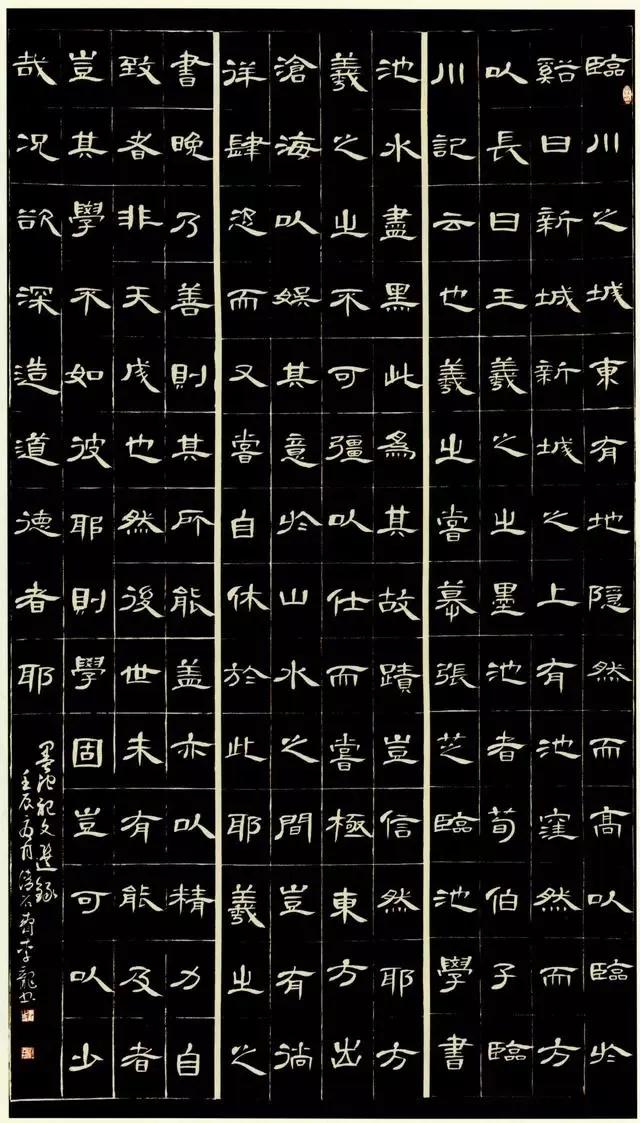 臨川之城東有地隱然而高以臨於
谿曰新城新城之上有池窪然而方
以長曰王羲之之墨池者荀伯子臨
川記云也羲之嘗慕張芝臨池學書
池水盡黑此為其故蹟豈信然耶方
羲之之不可彊以仕而嘗極東方出
滄海以娛其意於山水之間豈有徜
徉肆恣而又嘗自休於此耶羲之之
書晚乃善則其所能盖亦以精力自
致者非天成也然後世未有能及者
豈其學不如彼耶則學固豈可以少
哉況欲深造道德者耶
墨池記文選錄
壬辰月齋李龍書